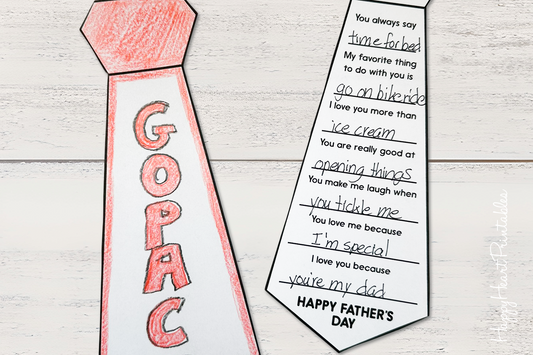 GOPAC
You always say
time for bed
My favorite thing
to do with you is
go on bike ride
I love you more than
ice cream
You are really good at
opening things
You make me laugh when
you tickle me
You love me because
I'm special
I love you because
you're my dad
HAPPY FATHER'S
DAY
Happy Heart Printables